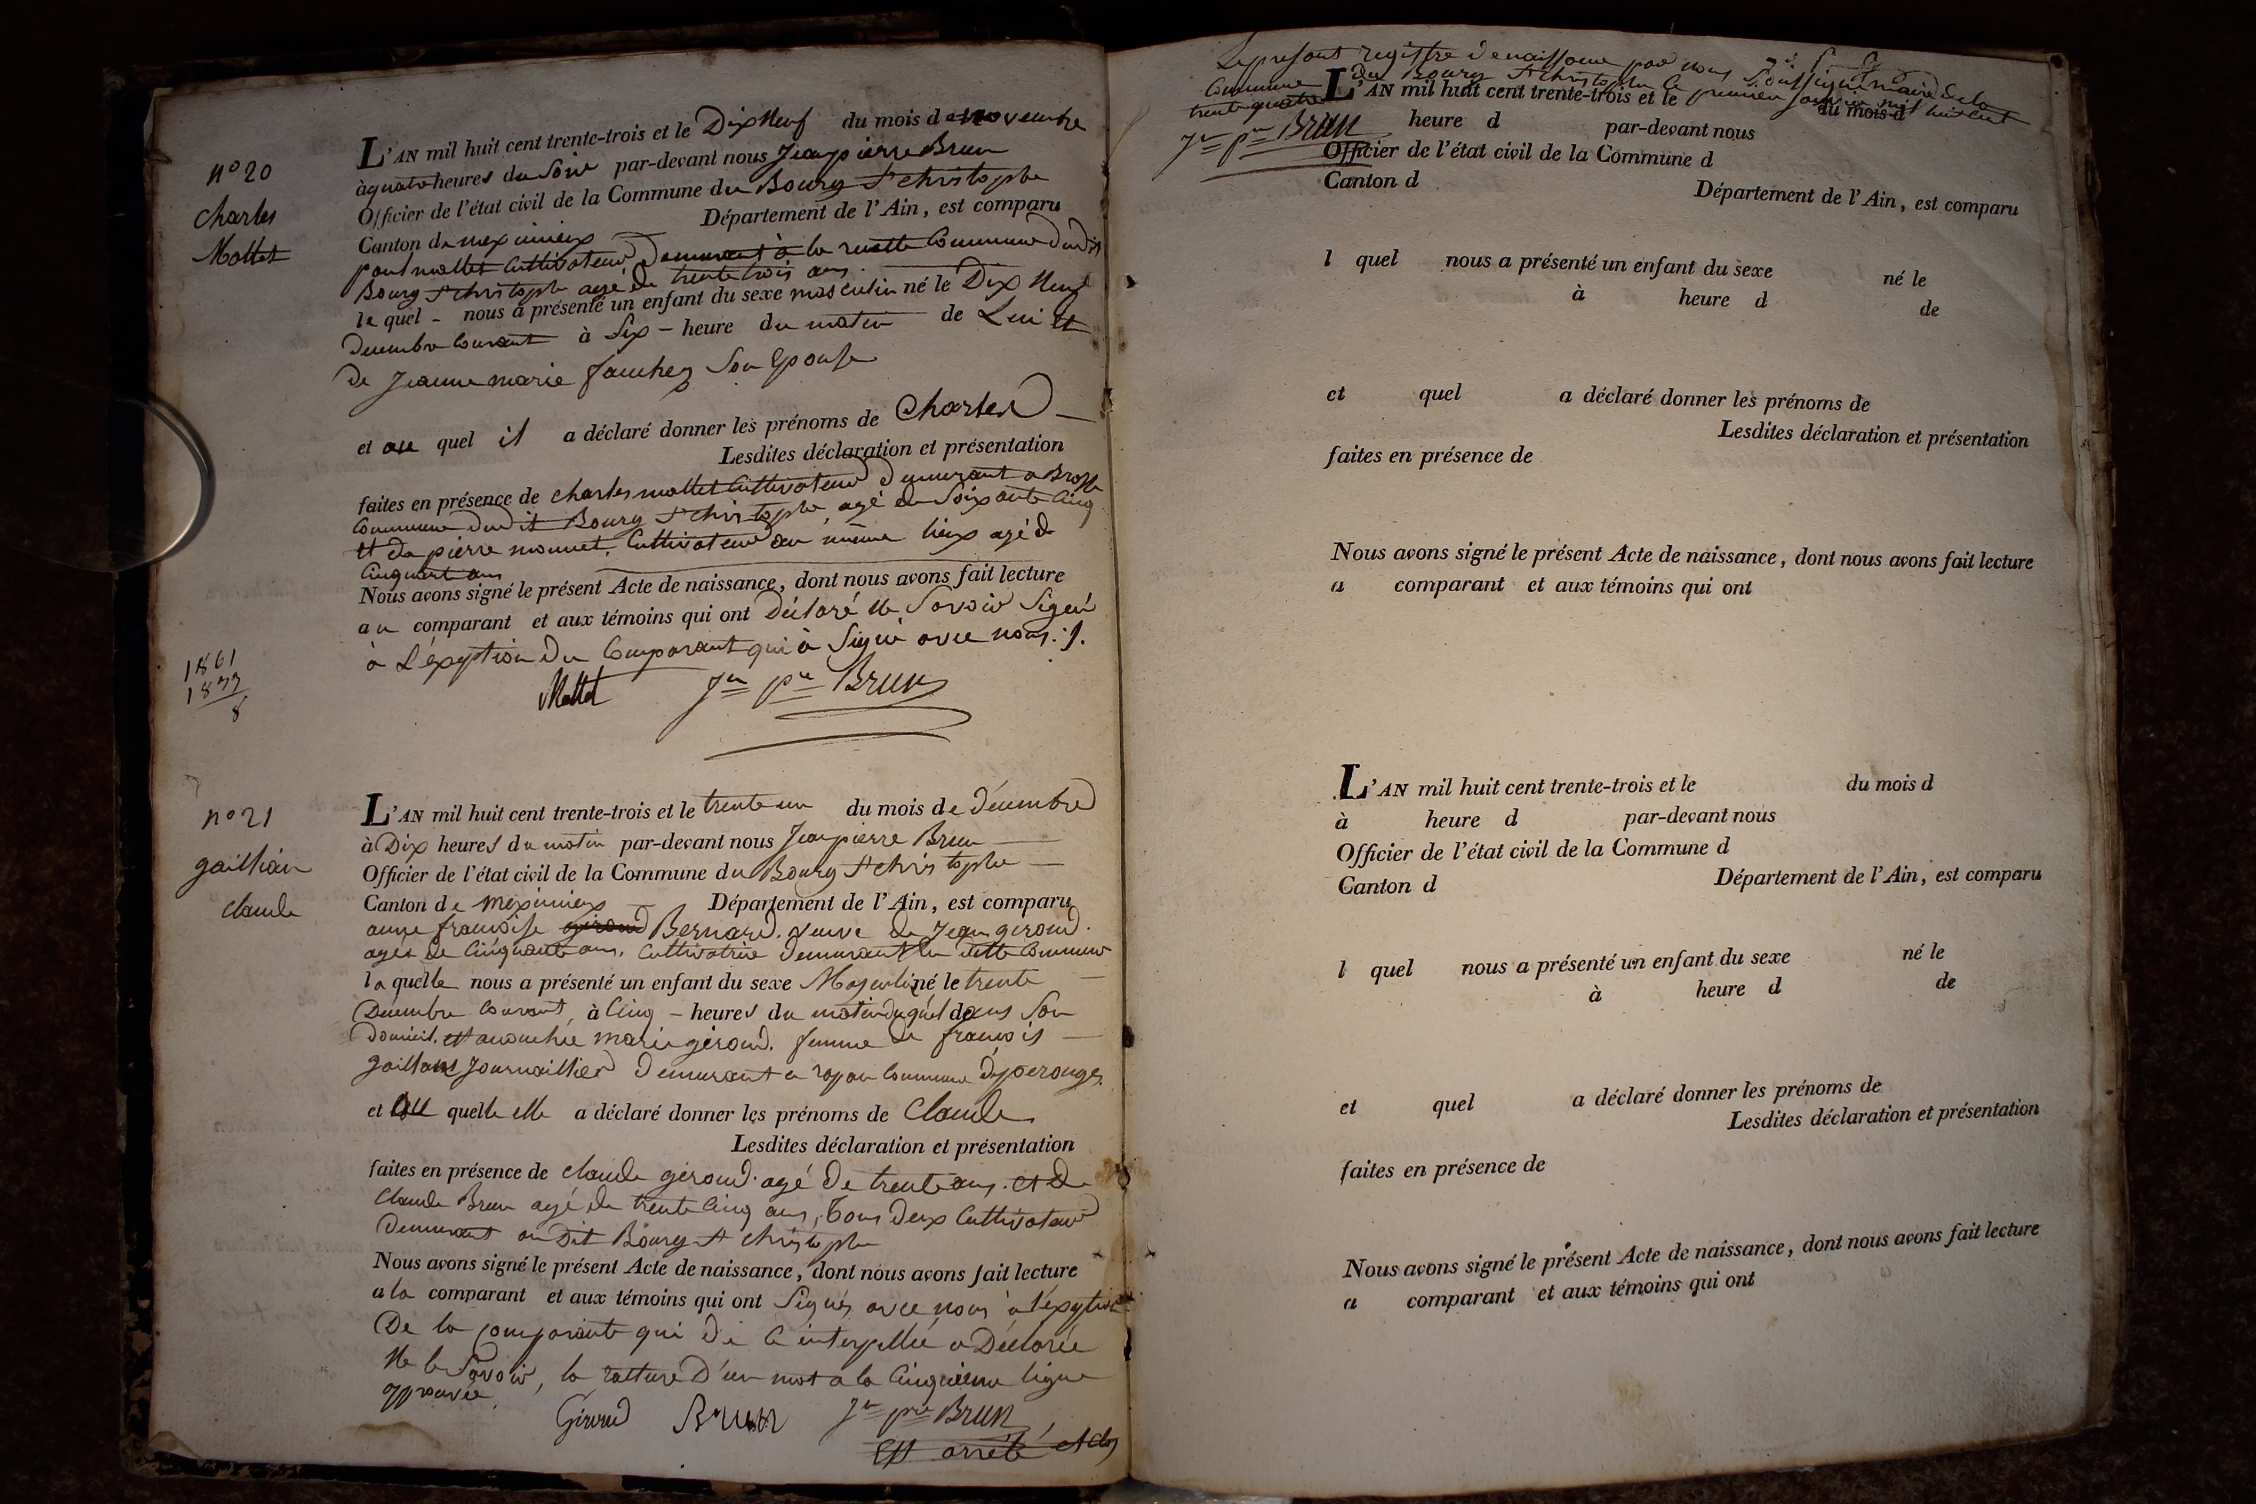 n° 20
Charles
Mollet
L'AN mil huit cent trente-trois et le Dix Neuf du mois de novembre
à quatre heures du Soir par-devant nous Jean pierre Brun
Officier de l'état civil de la Commune du Bourg St christophe
Canton de meximieux Département de l'Ain, est comparu
paul mollet Cultivateur Demeurant à la ruelle Commune dudit
Bourg St christophe agé de trente trois ans
le quel - nous a présenté un enfant du sexe masculin né le Dix Neuf
Decembre Courant à Six - heure du matin de Lui et
de Jeanne marie fauchey Son Epouse
et au quel il a déclaré donner les prénoms de Charles
Lesdites déclaration et présentation
faites en présence de charles mollet Cultivateur demeurant a
Commune dudit Bourg St christophe, agé de Soixante Cinq
et de pierre monnet, Cultivateur au même lieux agé de
Cinquant ans
Nous avons signé le présent Acte de naissance, dont nous avons fait lecture
au comparant et aux témoins qui ont Déclaré ne Savoir Signé
à L'éxeption du Comparant qui à Signé avec nous ./.
1861
1833
8
Mollet Jn pre Brun
n° 21
gaillian
claude
L'AN mil huit cent trente-trois et le trente un du mois de Décembre
à Dix heures du matin par-devant nous Jean pierre Brun
Officier de l'état civil de la Commune du Bourg St christophe
Canton de meximieux Département de l'Ain, est comparu
anne francoise giroud Bernard. veuve de Jean giroud.
agée de Cinquante ans, Cultivatrice demeurant en cette Commune
la quelle nous a présenté un enfant du sexe Masculin né le trente
Decembre Courant, à Cinq - heures du matin duquel dans Son
domicil. est accouchée marie giroud. femme de francois
gaillant Journaillier demeurant a rapan Commune de perouges
et au quelle elle a déclaré donner les prénoms de Claude
Lesdites déclaration et présentation
faites en présence de claude giroud. agé De trente ans. et de
Claude Brun agé de trente Cinq ans, Tous deux Cultivateur
Demeurant au Dit Bourg St christophe
Nous avons signé le présent Acte de naissance, dont nous avons fait lecture
a la comparant et aux témoins qui ont Signés avec nous à l'éxeption
De la comparante qui de ce interpellée a Déclarée
Ne le Savoir, la rature D'un mot a la Cinquieme ligne
approuvée.
Giroud Brun Jn pre Brun
Est arrété et clos
Le present registre de naissance par nous Soussigné maire de la
Commune du Bourg St christophe le premier janvier mil huit cent
trente quatre
Jn pre Brun
L'AN mil huit cent trente-trois et le du mois d
heure d par-devant nous
Officier de l'état civil de la Commune d
Canton d Département de l'Ain, est comparu
l quel nous a présenté un enfant du sexe né le
à heure d de
et quel a déclaré donner les prénoms de
Lesdites déclaration et présentation
faites en présence de
Nous avons signé le présent Acte de naissance, dont nous avons fait lecture
a comparant et aux témoins qui ont
L'AN mil huit cent trente-trois et le du mois d
à heure d par-devant nous
Officier de l'état civil de la Commune d
Canton d Département de l'Ain, est comparu
l quel nous a présenté un enfant du sexe né le
à heure d de
et quel a déclaré donner les prénoms de
Lesdites déclaration et présentation
faites en présence de
Nous avons signé le présent Acte de naissance, dont nous avons fait lecture
a comparant et aux témoins qui ont